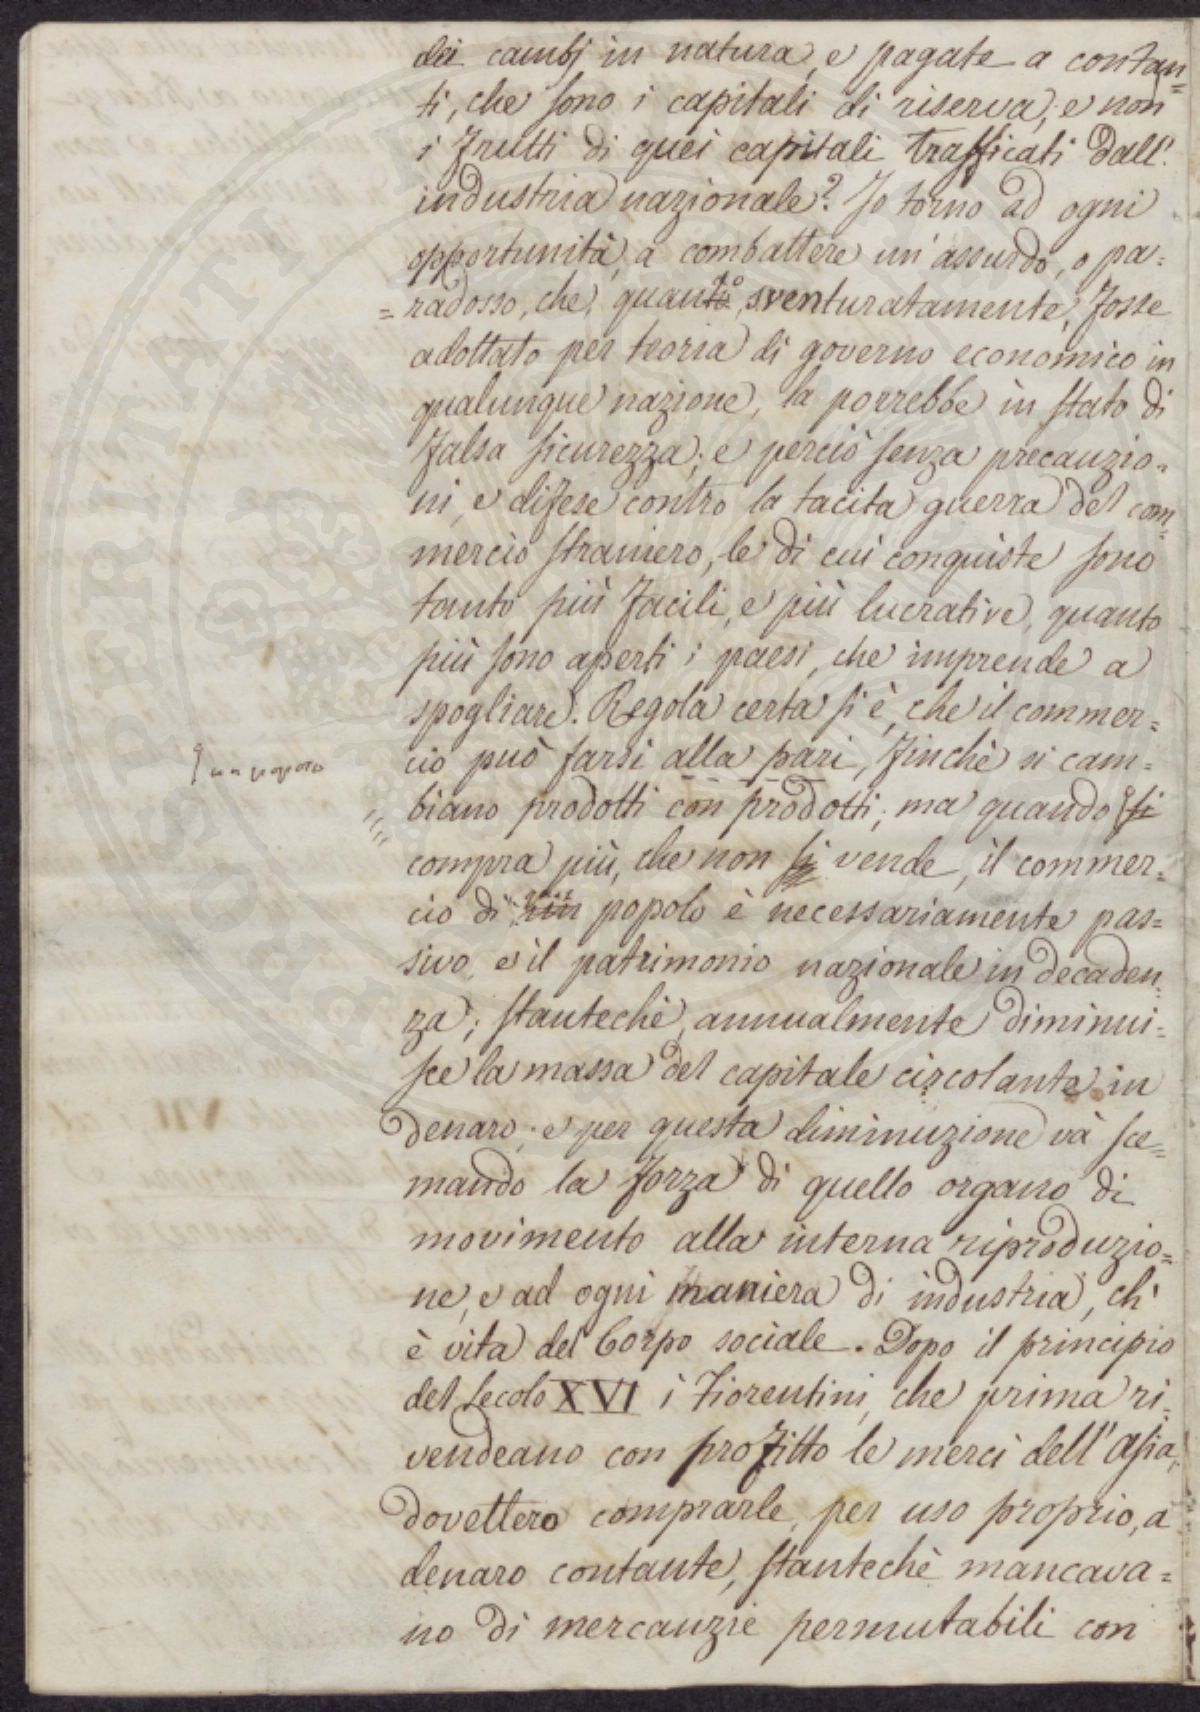 dei cambj in natura, e pagate a contan=
ti, che sono i capitali di riserva, e non
i frutti di quei capitali trafficati dall'
industria nazionale? Io torno ad ogni
opportunità, a combattere un'assurdo, o pa=
=radosso, che, quando, sventuratamente, fosse
adottato per teoria di governo economico in
qualunque nazione, la porrebbe in stato di
falsa sicurezza; e perciò senza precauzio=
ni, e difese contro la tacita guerra del com=
mercio straniero, le di cui conquiste sono
tanto più facili, e più lucrative, quanto
più sono aperti i paesi, che imprende a
spogliare. Regola certa si è, che il commer=
cio può farsi alla pari, finchè si cam=
un popolo
biano prodotti con prodotti; ma quando si
compra più, che non si vende, il commer=
cio di popolo è necessariamente pas=
sivo, e il patrimonio nazionale in decaden=
za; stantechè, annualmente diminui=
sce la massa del capitale circolante in
denaro; e per questa diminuzione và sce=
mando la forza di quello organo di
movimento alla interna riproduzio=
ne, e ad ogni maniera di industria, ch'
è vita del Corpo sociale. Dopo il principio
del secolo XVI i Fiorentini, che prima ri=
vendeano con profitto le merci dell'Asia,
dovettero comprarle, per uso proprio, a
denaro contante, stantechè mancava=
no di mercanzie permutabili con